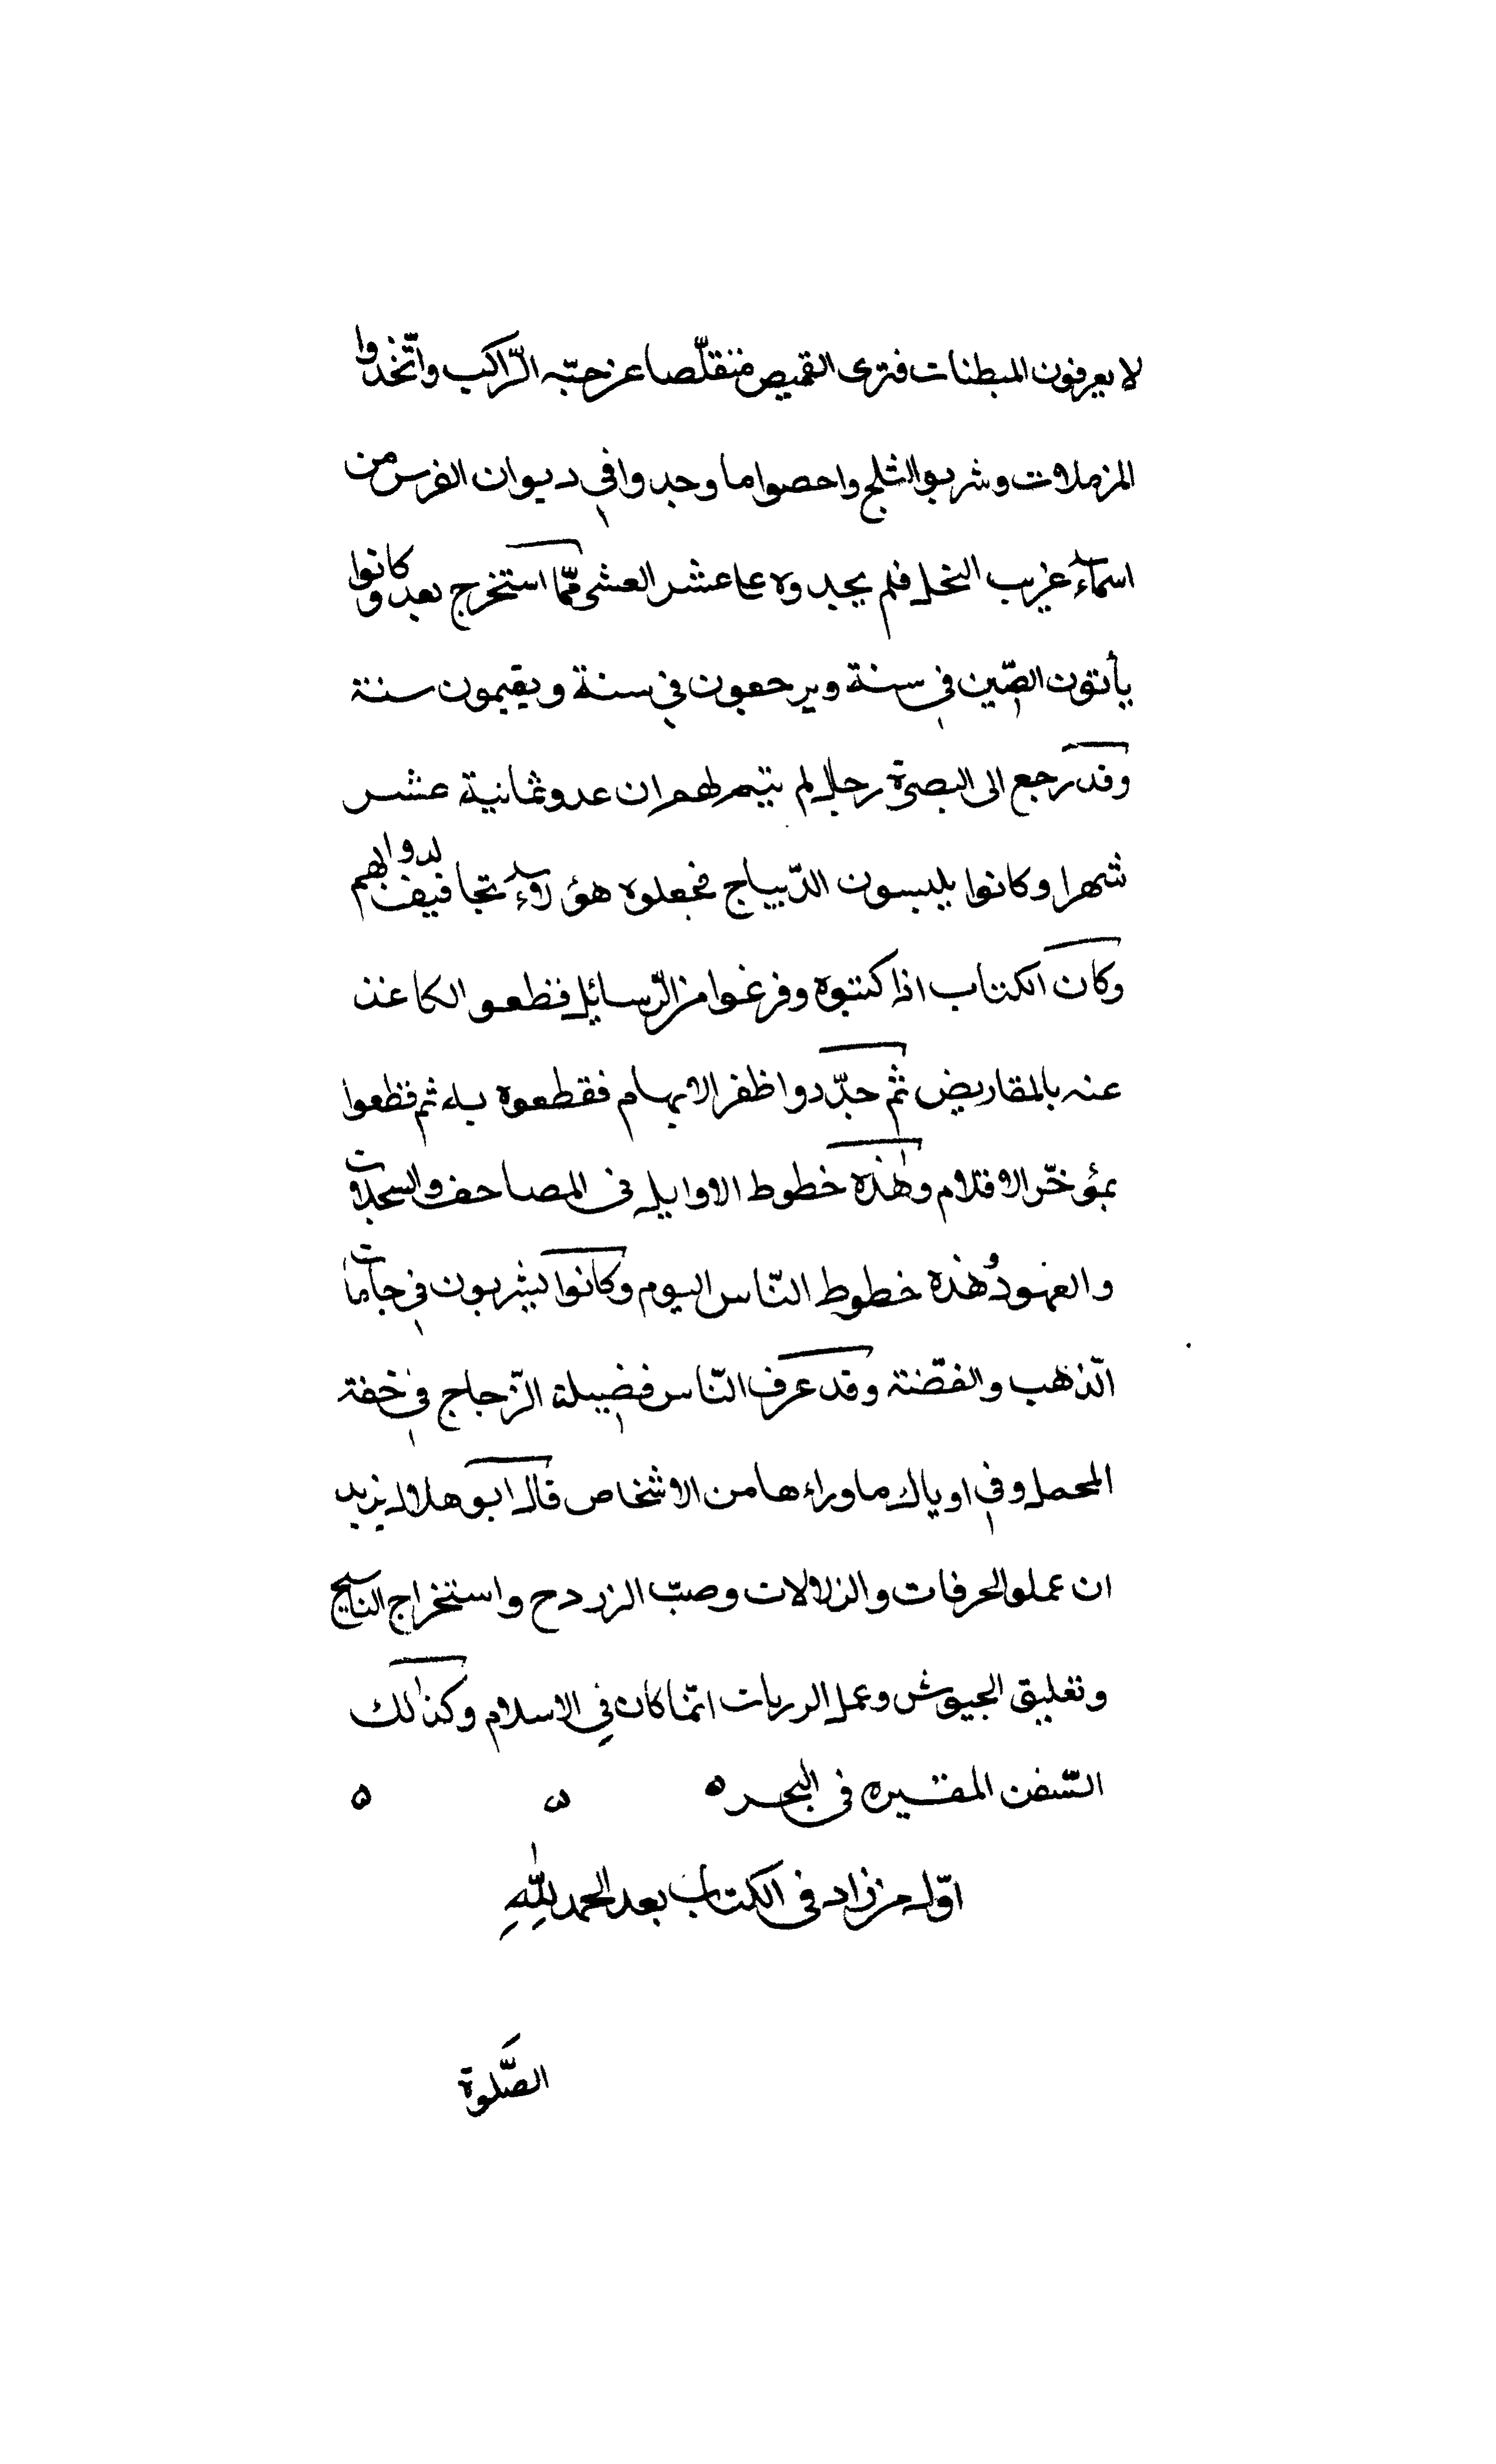 لا يعرفون المبطنات فترى القميص متقلّصا عن جبّه الرّاكب واتّخذوا
المزملات وشربوا الثلج واحصوا ما وجدوا في ديوان الفرس من
اسمآء غريب النخل فلم يجدوه على عشر العشر ممّا استخرج بعد وكانوا
يأتون الصّين في سنة ويرجعون في سنة ويقيمون سنة
وقد رجع الى البصرة رجال لم يتم لهم ان عدوا ثمانية عشر
شهرا وكانوا يلبسون الدّيباج فجعلوه هؤلآء تجافيف لدوابهم
وكان الكتاب اذا كتبوه وفرغوا من الرّسائل قطعو الكاغذ
عنه بالمقاريض ثم حدّدوا ظفر الابهام فقطعوه به ثم قطعوا
بمؤخّر الاقلام وهٰذه خطوط الاوايل في المصاحف والسجلات
والعهود وهذه خطوط النّاس اليوم وكانوا يشربون في جامات
الذهب والفضّة وقد عرف النّاس فضيلة الزّجاج في خفة
المحمل وفي اوياك ماوراءها من الاشخاص قال ابو هلال يزيد
ان عملوا الحرفات والزلالات وصبّ الزردح واستخراج
وتعليق الجيوش وعمل انّما كان في الاسلام وكذٰلك
السّفن المقيره في البحر ه ه ه
اوّل من زاد في الكتاب بعد الحمد للّٰهِ
الصَّلوة